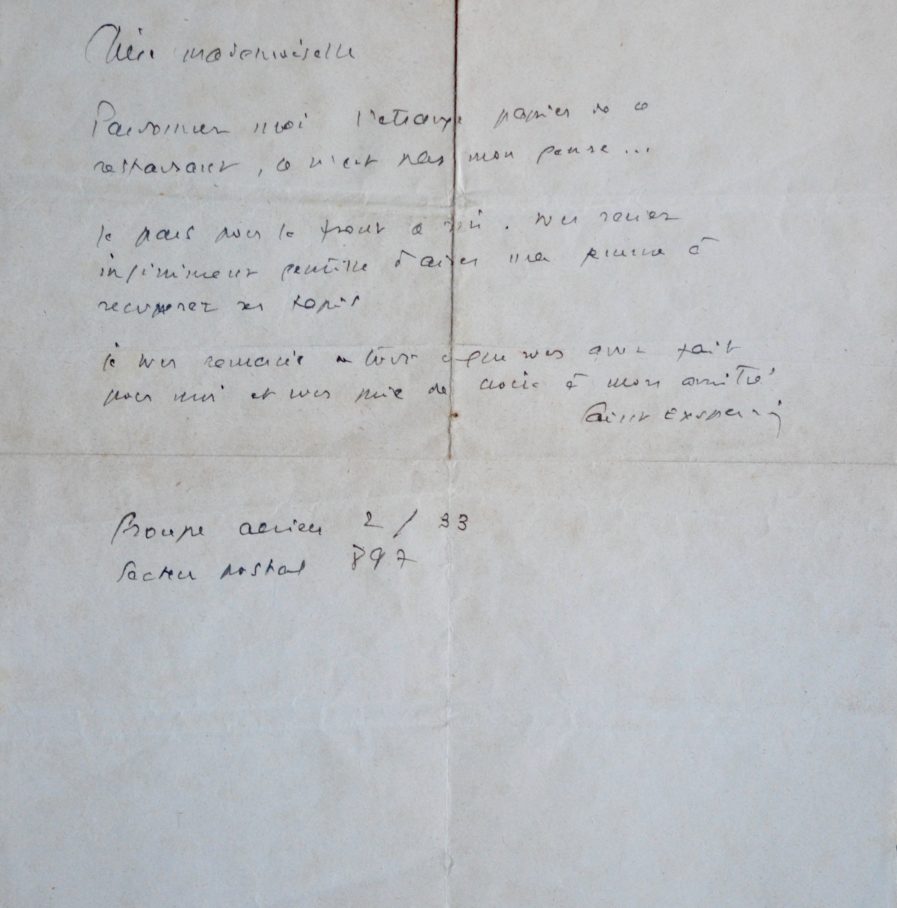 Chère mademoiselle
Pardonnez moi l'étrange papier de ce
restaurant, ce n'est pas mon genre...
Je pars pour le front à midi. Vous seriez
infiniment gentille d'aider ma femme à
récupérer ses tapis
Je vous remercie de tout ce que vous avez fait
pour moi et vous prie de croire à mon amitié
Saint Exupéry
Groupe aérien 2/33
Secteur postal 897